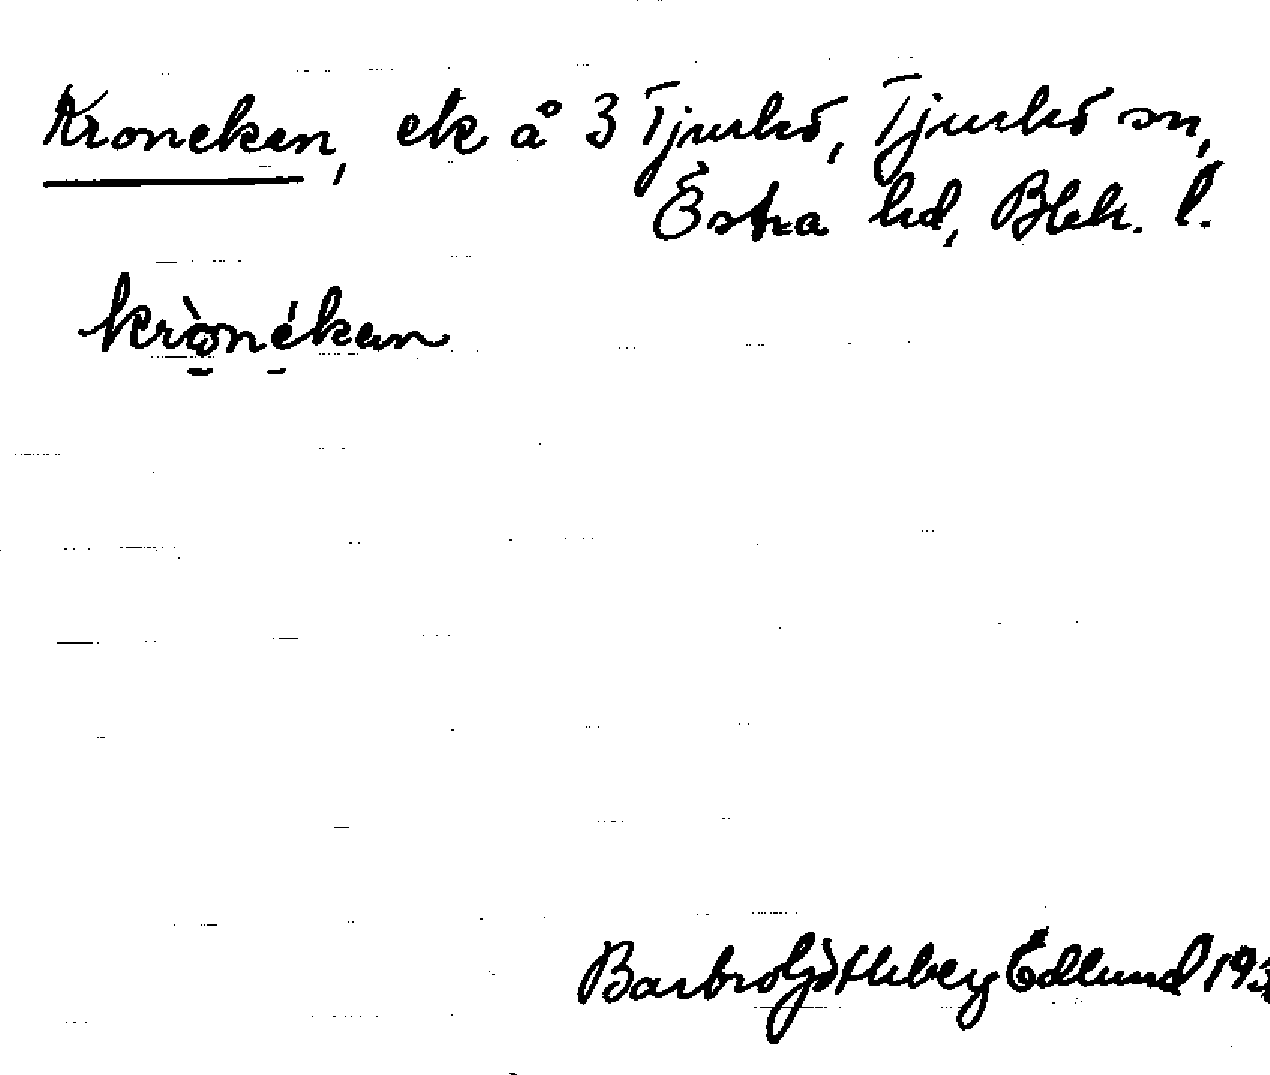 Kroneken, ek å 3 Tjurkö, Tjurkö sn,
Östra hd, Blek. l.
krònékan
Barbro Götheberg Edlund 193